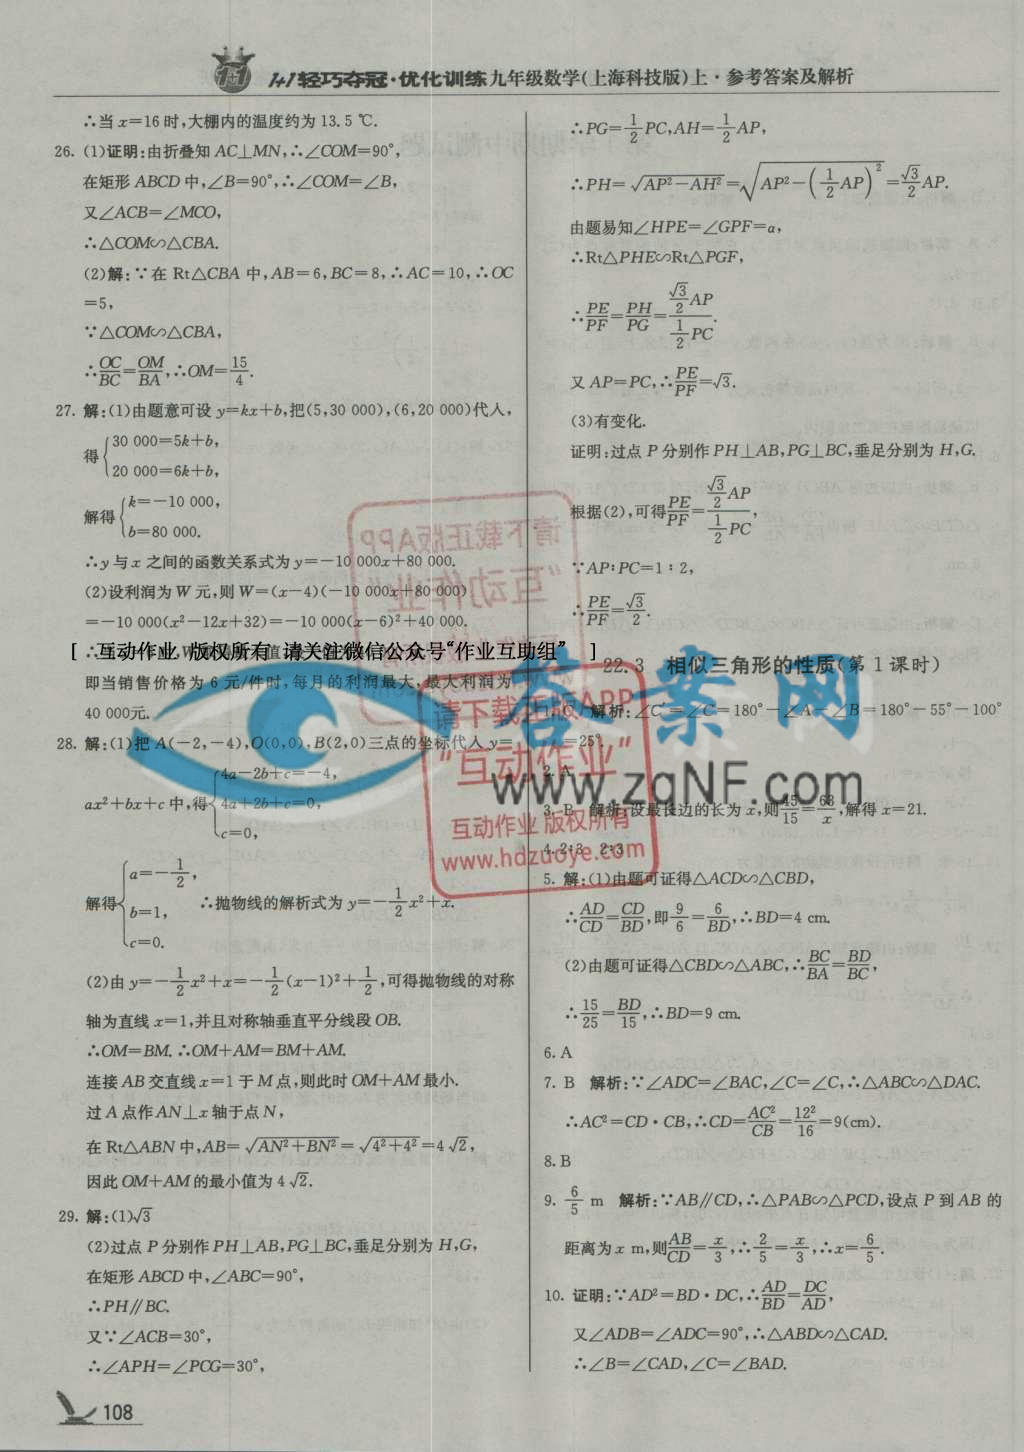 1+1轻巧夺冠·优化训练九年级数学(上海科技版)上·参考答案及解析
∴当x=16时,大棚内的温度约为13.5 ℃.
26. (1)证明:由折叠知AC⊥MN,∴∠COM=90°,
在矩形ABCD中,∠B=90°,∴∠COM=∠B,
又∠ACB=∠MCO,
∴△COM∽△CBA.
(2)解:∵在Rt△CBA中,AB=6,BC=8,∴AC=10,∴OC
=5,
∵△COM∽△CBA,
∴OC/BC=OM/BA,∴OM=15/4.
27. 解:(1)由题意可设y=kx+b,把(5,30 000),(6,20 000)代人,
得{30 000=5k+b,
20 000=6k+b,
解得{k=-10 000,
b=80 000.
∴y与x之间的函数关系式为y=-10 000x+80 000.
(2)设利润为W元,则W=(x-4)(-10 000x+80 000)
=-10 000(x²-12x+32)=-10 000(x-6)²+40 000.
[ 互动作业 版权所有 请关注微信公众号“作业互助组” ]
即当销售价格为6元/件时,每月的利润最大,最大利润为
40 000元.
28. 解:(1)把A(-2,-4),O(0,0),B(2,0)三点的坐标代人y=
ax²+bx+c中,得{4a-2b+c=-4,
4a+2b+c=0,
c=0,
解得{a=-1/2,
b=1,
c=0.
∴抛物线的解析式为y=-1/2x²+x.
(2)由y=-1/2x²+x=-1/2(x-1)²+1/2,可得抛物线的对称
轴为直线x=1,并且对称轴垂直平分线段OB.
∴OM=BM.∴OM+AM=BM+AM.
连接AB交直线x=1于M点,则此时OM+AM最小.
过A点作AN⊥x轴于点N,
在Rt△ABN中,AB=√AN²+BN²=√4²+4²=4√2,
因此OM+AM的最小值为4√2.
29. 解:(1)√3
(2)过点P分别作PH⊥AB,PG⊥BC,垂足分别为H,G,
在矩形ABCD中,∠ABC=90°,
∴PH∥BC.
又∵∠ACB=30°,
∴∠APH=∠PCG=30°,
∴PG=1/2PC,AH=1/2AP,
∴PH=√AP²-AH²=√AP²-(1/2AP)²=√3/2AP.
由题易知∠HPE=∠GPF=α,
∴Rt△PHE∽Rt△PGF,
∴PE/PF=PH/PG=(√3/2AP)/(1/2PC).
又AP=PC,∴PE/PF=√3.
(3)有变化.
证明:过点P分别作PH⊥AB,PG⊥BC,垂足分别为H,G.
根据(2),可得PE/PF=(√3/2AP)/(1/2PC),
∵AP∶PC=1∶2,
∴PE/PF=√3/2.
22.3 相似三角形的性质(第1课时)
1. C 解析:∠C′=∠C=180°-∠A-∠B=180°-55°-100°
=25°.
2. A
3. B 解析:设最长边的长为x,则45/15=63/x,解得x=21.
4. 2∶3 2∶3
5. 解:(1)由题可证得△ACD∽△CBD,
∴AD/CD=CD/BD,即9/6=6/BD,∴BD=4 cm.
(2)由题可证得△CBD∽△ABC,∴BC/BA=BD/BC,
∴15/25=BD/15,∴BD=9 cm.
6. A
7. B 解析:∵∠ADC=∠BAC,∠C=∠C,∴△ABC∽△DAC.
∴AC²=CD·CB,∴CD=AC²/CB=12²/16=9(cm).
8. B
9. 6/5 m 解析:∵AB∥CD,∴△PAB∽△PCD,设点P到AB的
距离为x m,则AB/CD=x/3,∴2/5=x/3,∴x=6/5.
10. 证明:∵AD²=BD·DC,∴AD/BD=DC/AD,
又∠ADB=∠ADC=90°,∴△ABD∽△CAD.
∴∠B=∠CAD,∠C=∠BAD.
108
答案网
www.zqNF.com
请下载正版APP
“互动作业”
互动作业 版权所有
www.hdzuoye.com
请下载正版APP
“互动作业”